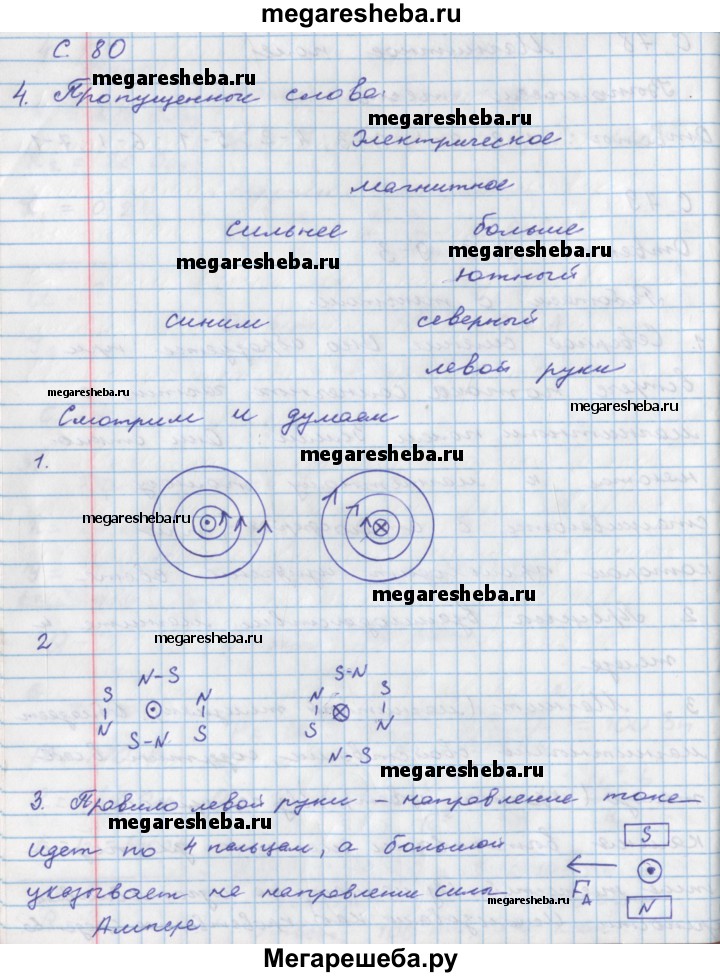 megaresheba.ru
С. 80
megaresheba.ru
4. Пропущенные слова:
megaresheba.ru
Электрическое
магнитное
сильнее больше
megaresheba.ru megaresheba.ru
южный
синим северный
левой руки
megaresheba.ru megaresheba.ru
Смотрим и думаем
1. megaresheba.ru
megaresheba.ru
megaresheba.ru
2 megaresheba.ru
N-S S-N
S N N S
N S S N
S-N N-S
megaresheba.ru
3. Правило левой руки – направление тока
megaresheba.ru
идет по 4 пальцам, а большой S
указывает на направлени силы FA N
megaresheba.ru
Ампера
Мегарешеба.ру